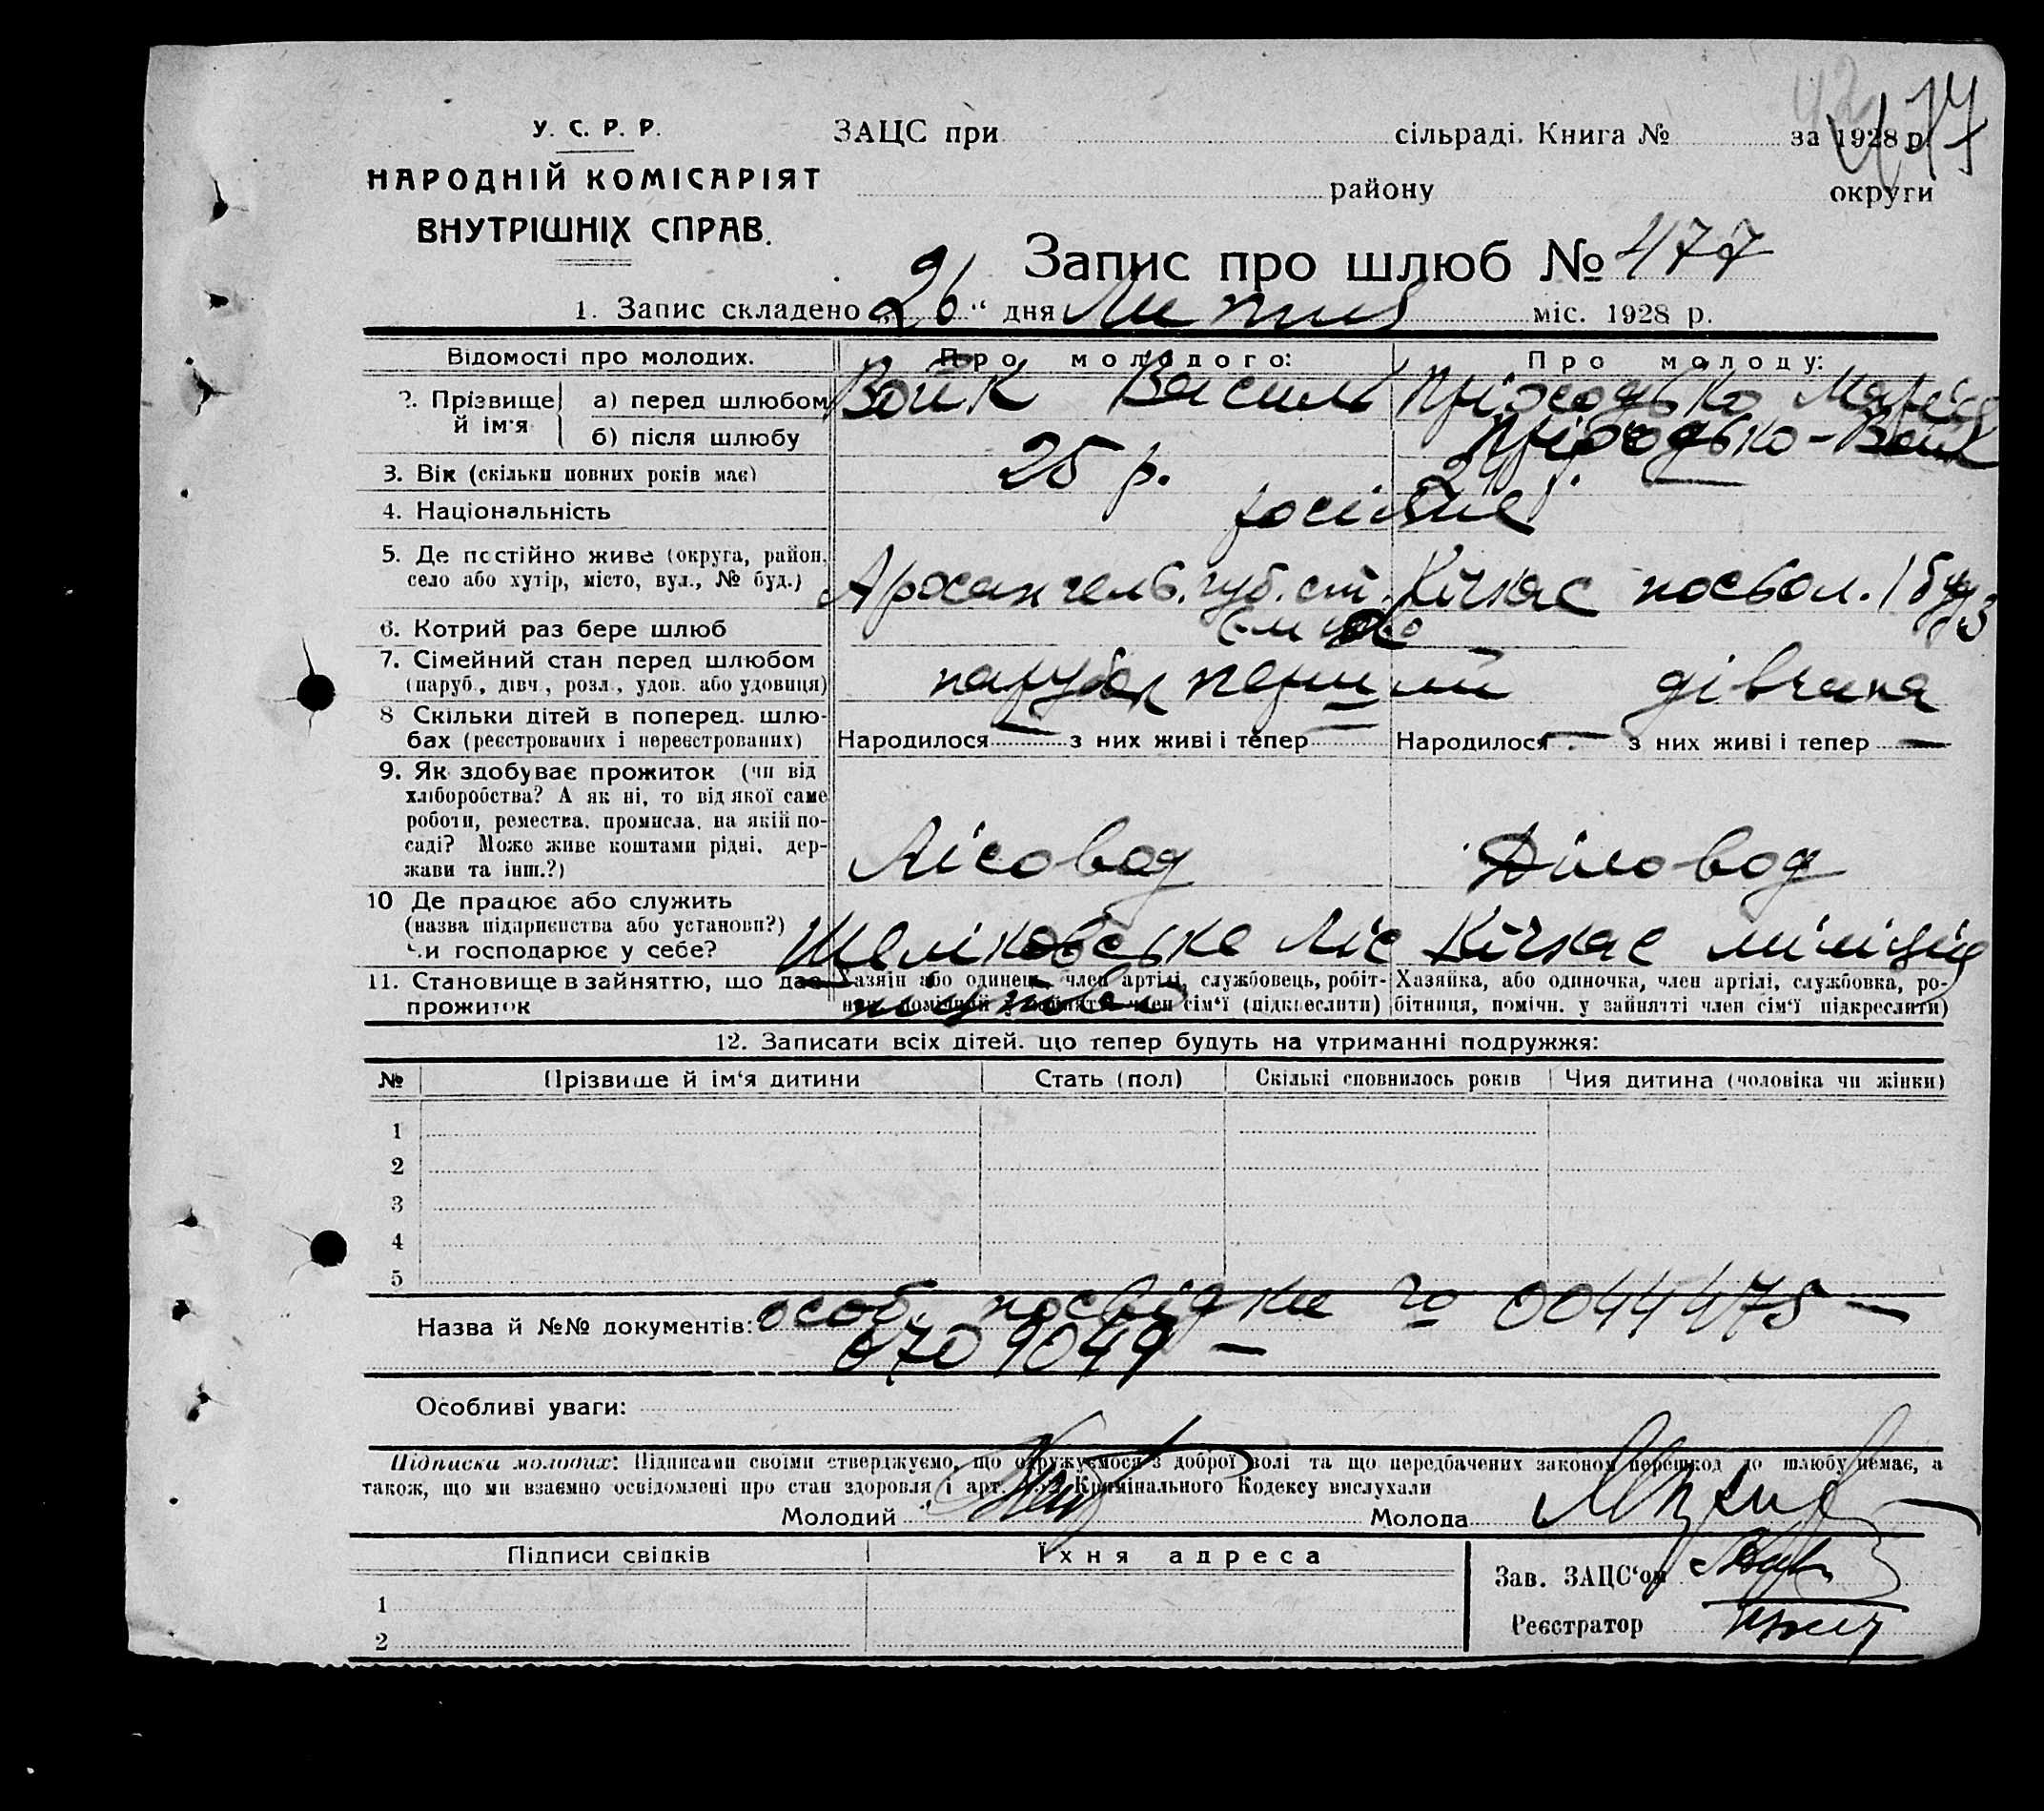 477
У. С. Р. Р.
НАРОДНІЙ КОМІСАРІЯТ
ВНУТРІШНІХ СПРАВ.
ЗАЦС при сільраді. Книга № за 1928 р.
району округи
Запис про шлюб № 477
1. Запис складено „26“ дня Липня міс. 1928 р.
Відомості про молодих. Про молодого: Про молоду:
2. Прізвище й ім'я
а) перед шлюбом Войк Василь Марія
б) після шлюбу
3. Вік (скільки повних років має) 25 р.
4. Національність росіяне
5. Де постійно живе (округа, район, село або хутір, місто, вул., № буд.) Архангель. губ. ст. Кічкас
6. Котрий раз бере шлюб
7. Сімейний стан перед шлюбом (паруб., дівч., розл., удов. або удовиця) парубок перший дівчина
8 Скільки дітей в поперед. шлюбах (реєстрованих і нереєстрованих) Народилося — з них живі і тепер — Народилося — з них живі і тепер —
9. Як здобуває прожиток (чи від
хліборобства? А як ні, то від якої саме
роботи, ремества, промисла, на якій по-
саді? Може живе коштами рідні, дер-
жави та інш.?)
Лісовод Діловод
10 Де працює або служить
(назва підприємства або установи?)
Чи господарює у себе?
Ліс Кічкас міліція
11. Становище в зайняттю, що дає прожиток
Хазяїн або одинець, член артілі, службовець, робіт-
ник, помічний у зайнятті член сім'ї (підкреслити)
Хазяйка, або одиночка, член артілі, службовка, ро-
бітниця, помічн. у зайнятті член сім'ї підкреслити)
12. Записати всіх дітей. що тепер будуть на утриманні подружжя:
№ Прізвище й ім'я дитини Стать (пол) Скількі сповнилось років Чия дитина (чоловіка чи жінки)
1
2
3
4
5
Назва й №№ документів: особ. посвідки № 0044475 —
0709049 —
Особливі уваги:
Підписки молодих: Підписами своїми стверджуємо, що одружуємося з доброї волі та що передбачених законом перешкод до шлюбу немає, а
також, що ми взаємно освідомлені про стан здоровля і арт. Кримінального Кодексу вислухали
Молодий Молода
Підписи свідків Їхня адреса
Зав. ЗАЦС'ом
1
Реєстратор
2